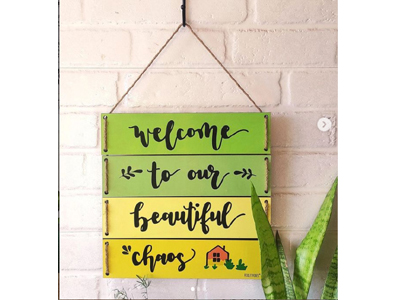 welcome
to our
beautiful
chaos